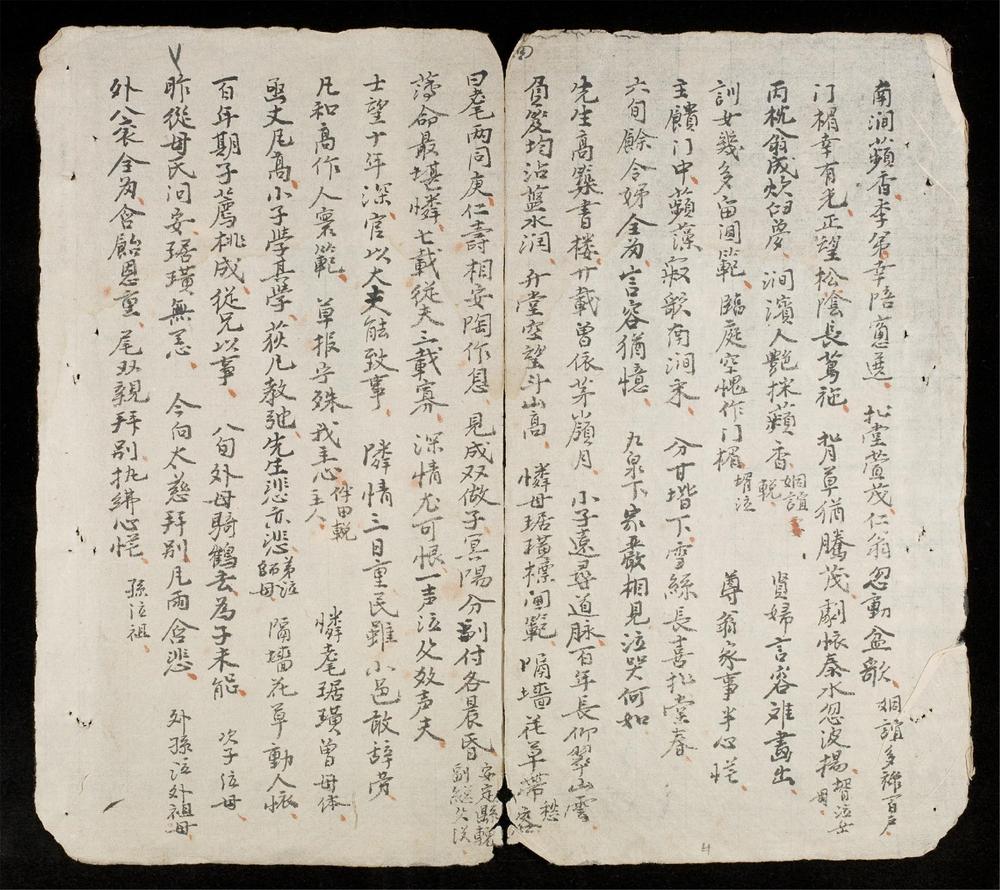 南澗蘋香季第幸陪意選 松堂萱茂仁翁忽動盆歌 姻誼多雜百戶
门楣幸有光正望松陰長蔦施 背草猶騰茂劇悵秦水忽波揚 壻泣岳母
丙枕翁成炊臼夢 澗濱人艷採蘋香 姻誼輓 賢婦言容难畫出
訓女幾多宙閫範 臨庭空愧作门楣 壻泣 尊翁家事半心忙
主饋门中蘋藻寂歌南澗采 分甘堦下雪絲長喜北堂春
六旬餘令姊全为言容猶憶 九泉下家嚴相見泣哭何如
先生高築書楼廿載曾依茅嶺月 小子遠尋道脉百年長仰翠山雲
負笈均沾盤水润 升堂空望斗山高 憐母琚璜標閫範 隔墙花草带愁容
曰耄两同庚仁壽相安陶作息 見成双做子冥陽分割付各晨昏 安定縣輓副総父
薄命最堪憐七載從夫三載寡 深情尤可恨一声泣父效声夫
士望十年深官以大夫能致事 隣情三日重民雖小邑敢辞劳
凡和高作人寰範 草报乎殊我主心 伴田輓主人 憐耄琚璜曾母体
亟丈凡高小子學其學 荻几教弛先生悲亦悲 弟泣師母 隔墻花草動人悵
百年期子薦桃成從兄以事 八旬外母騎鶴去為子未能 次子泣母
昨從母氏问安琚璜無恙 今向太慈拜别凡雨含悲 外孫泣外祖母
外八衮全为含飴恩重 尾双親拜别执紼心忙 孫泣祖